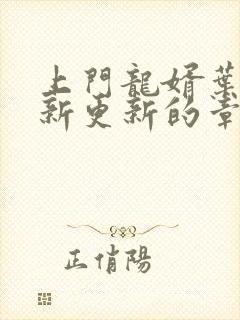 上門龍婿葉
新更新的章
正俏陽